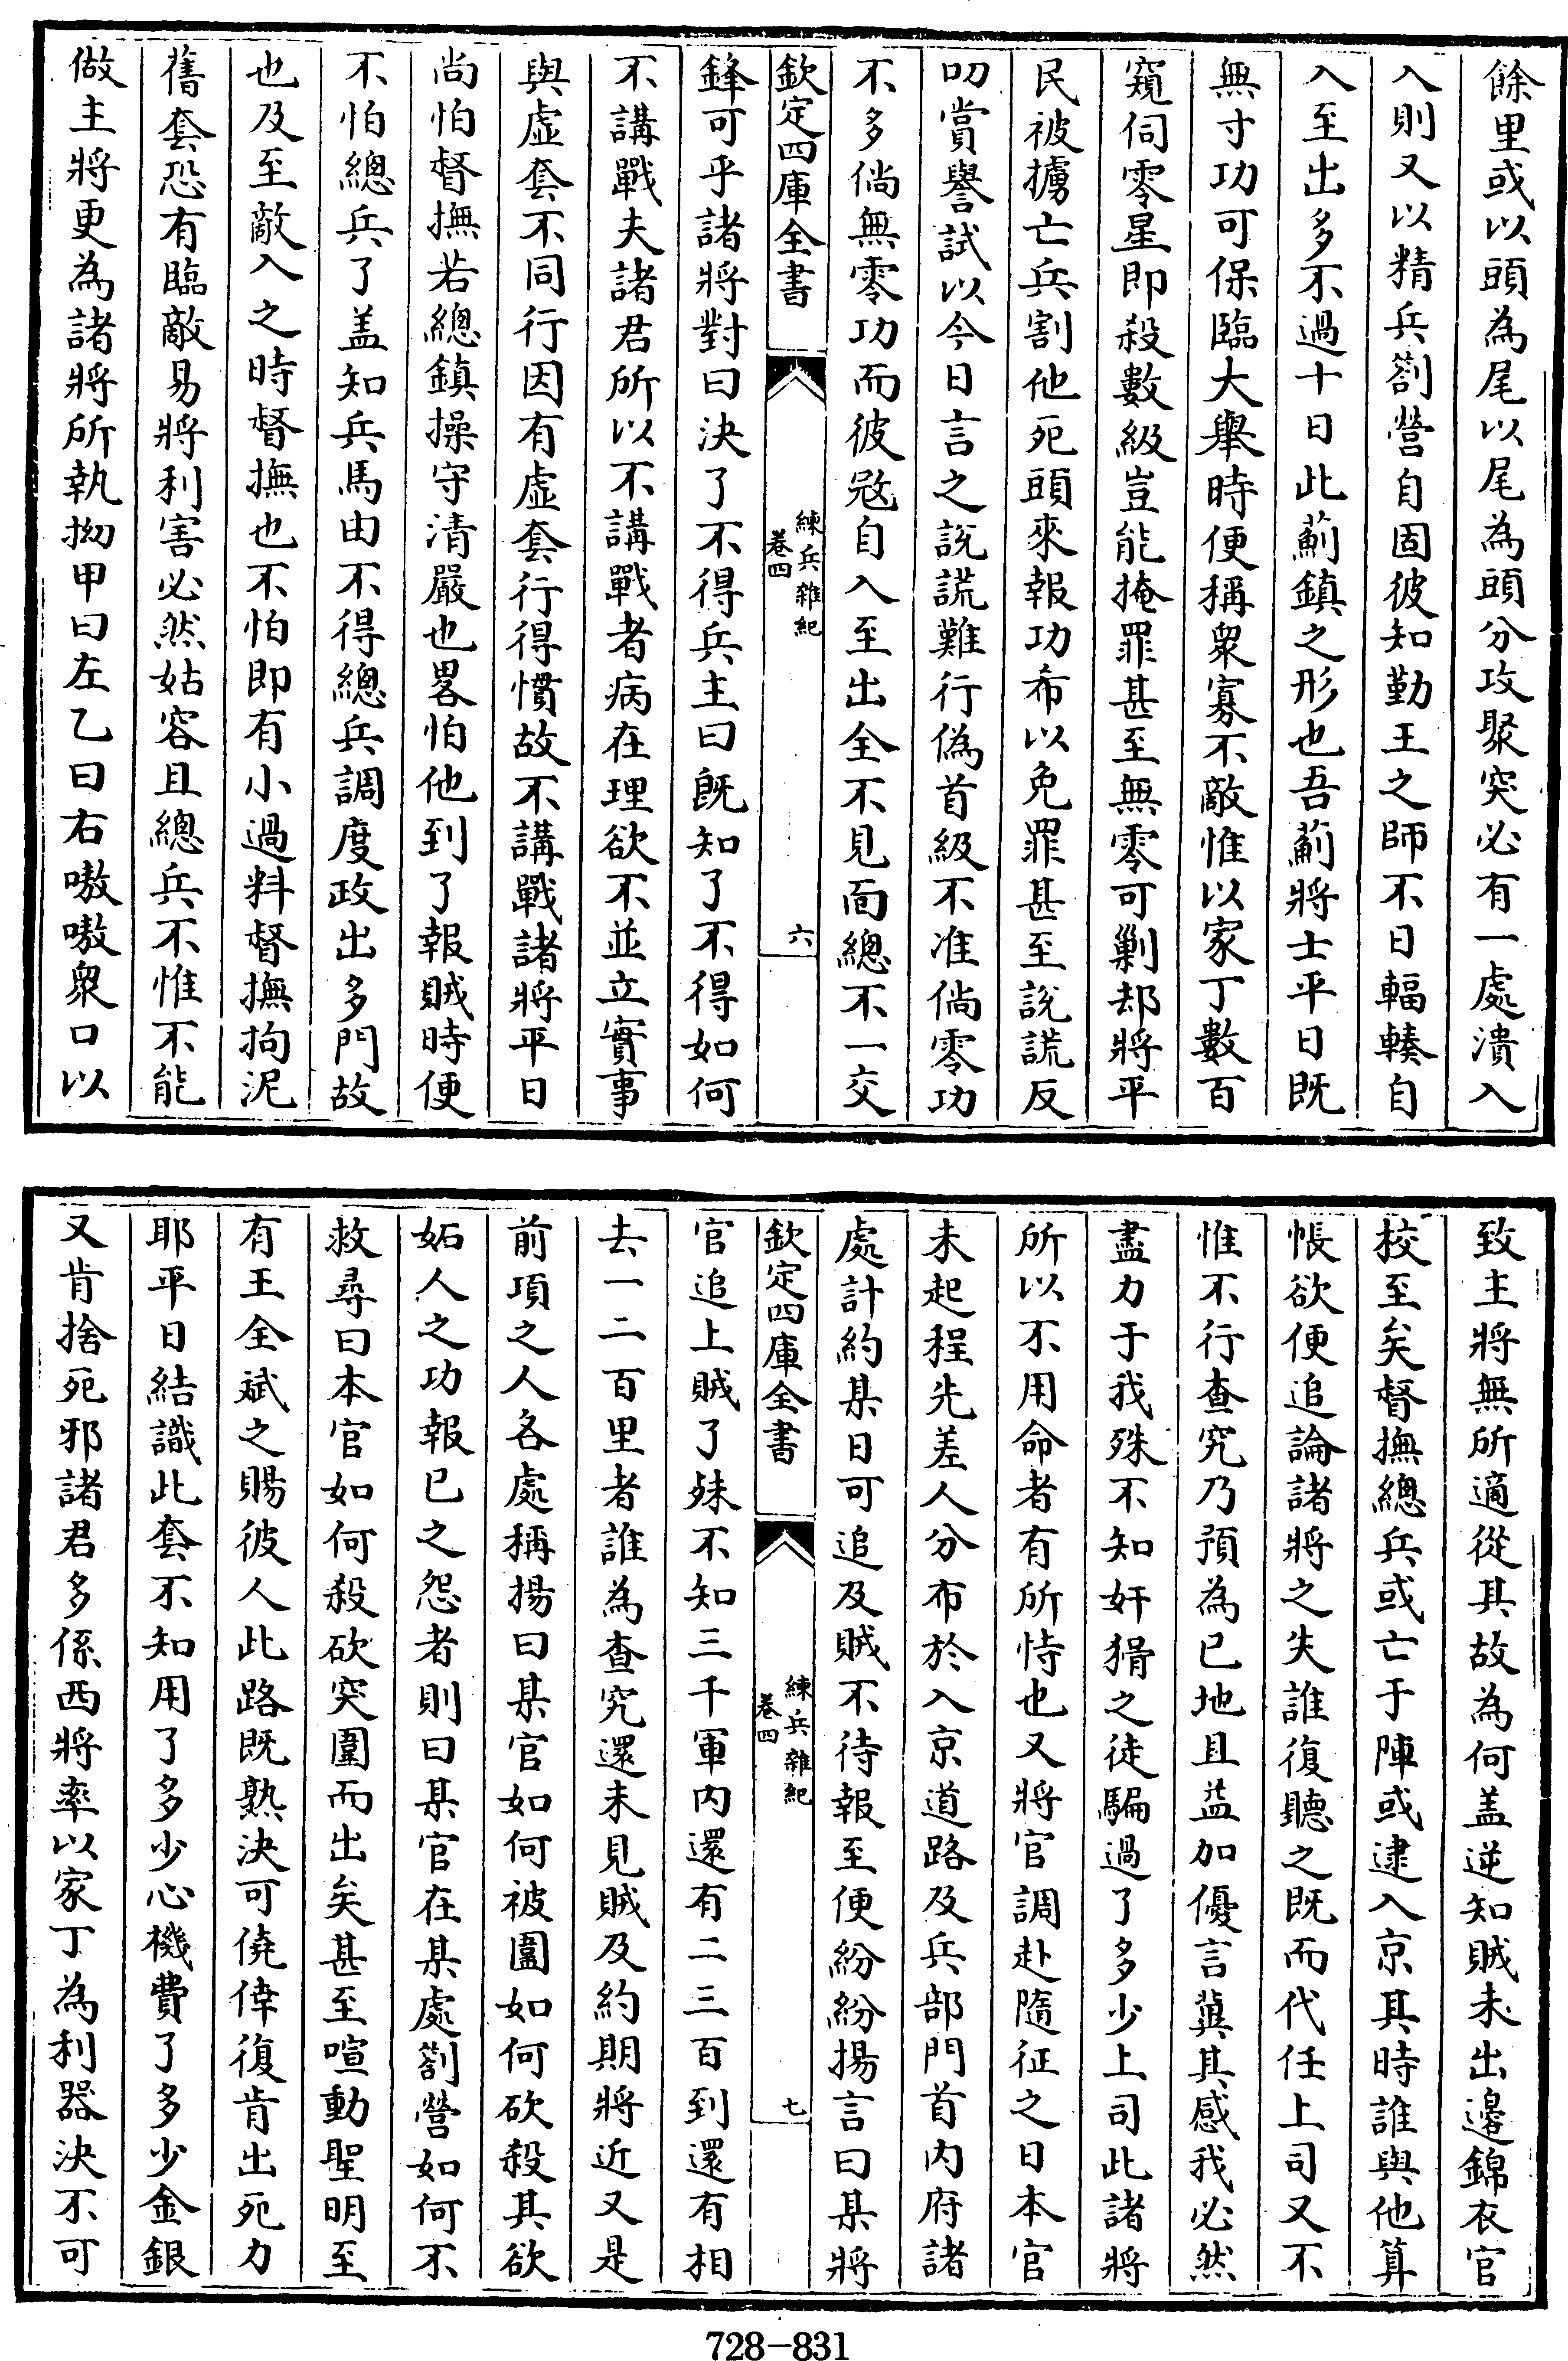 餘里或以頭為尾以尾為頭分攻聚突必有一處潰入
入則又以精兵劄營自固彼知勤王之師不日輻輳自
入至出多不過十日此薊鎮之形也吾薊將士平日既
無寸功可保臨大舉時便稱衆寡不敵惟以家丁數百
窺伺零星即殺數級豈能掩罪甚至無零可剿却將平
民被擄亡兵割他死頭來報功希以免罪甚至說謊反
叨賞譽試以今日言之說謊難行偽首級不准倘零功
不多倘無零功而彼冦自入至出全不見面總不一交
欽定四庫全書
練兵雜紀
卷四
六
鋒可乎諸將對曰決了不得兵主曰既知了不得如何
不講戰夫諸君所以不講戰者病在理欲不並立實事
與虛套不同行因有虛套行得慣故不講戰諸將平日
尚怕督撫若總鎮操守清嚴也畧怕他到了報賊時便
不怕總兵了盖知兵馬由不得總兵調度政出多門故
也及至敵入之時督撫也不怕即有小過料督撫拘泥
舊套恐有臨敵易將利害必然姑容且總兵不惟不能
做主將更為諸將所執拗甲曰左乙曰右嗷嗷衆口以
致主將無所適從其故為何盖逆知賊未出邊錦衣官
校至矣督撫總兵或亡于陣或逮入京其時誰與他算
帳欲便追論諸將之失誰復聽之既而代任上司又不
惟不行查究乃預為已地且益加優言冀其感我必然
盡力于我殊不知奸猾之徒騙過了多少上司此諸將
所以不用命者有所恃也又將官調赴隨征之日本官
未起程先差人分布於入京道路及兵部門首内府諸
處計約某日可追及賊不待報至便紛紛揚言曰某將
欽定四庫全書
練兵雜紀
卷四
七
官追上賊了殊不知三千軍内還有二三百到還有相
去一二百里者誰為查究還未見賊及約期將近又是
前項之人各處稱揚曰某官如何被圍如何砍殺其欲
妬人之功報已之怨者則曰某官在某處劄營如何不
救尋曰本官如何殺砍突圍而出矣甚至喧動聖明至
有王全斌之賜彼人此路既熟決可僥倖復肯出死力
耶平日結識此套不知用了多少心機費了多少金銀
又肯捨死邪諸君多係西將率以家丁為利器決不可
728-831